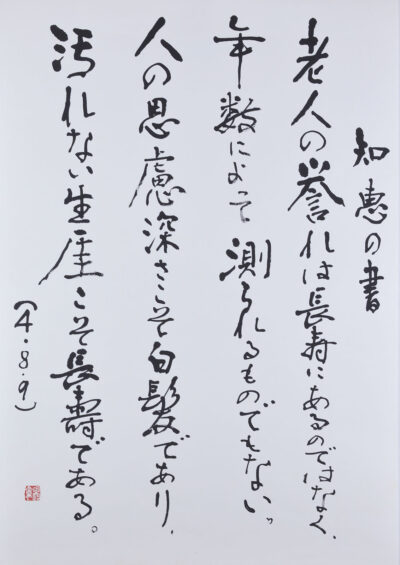 知恵の書
老人の誉れは長寿にあるのではなく、
年数によって測られるものでもない。
人の思慮深さこそ白髪であり、
汚れない生涯こそ長寿である。
(4・8・9)